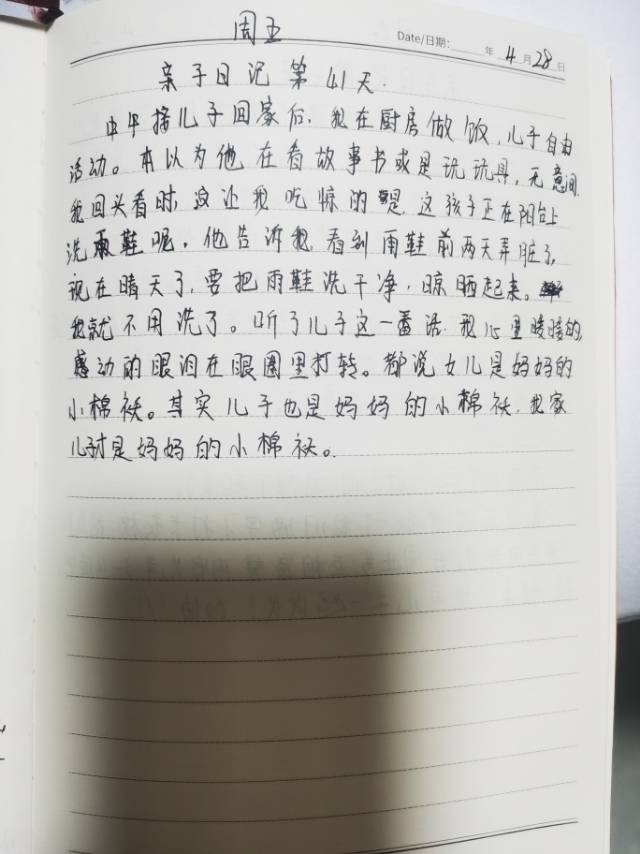 周五
Date/日期: 年 4 月 28 日
亲子日记第41天.
中午接儿子回家后,我在厨房做饭,儿子自由
活动。本以为他在看故事书或是玩玩具,无意间
我回头看时,这让我吃惊的是,这孩子正在阳台上
洗雨鞋呢。他告诉我,看到雨鞋前两天弄脏了,
现在晴天了,要把雨鞋洗干净,晾晒起来。
我就不用洗了。听了儿子这一番话,我心里暖暖的,
感动的眼泪在眼圈里打转。都说女儿是妈妈的
小棉袄。其实儿子也是妈妈的小棉袄,我家
儿子才是妈妈的小棉袄。